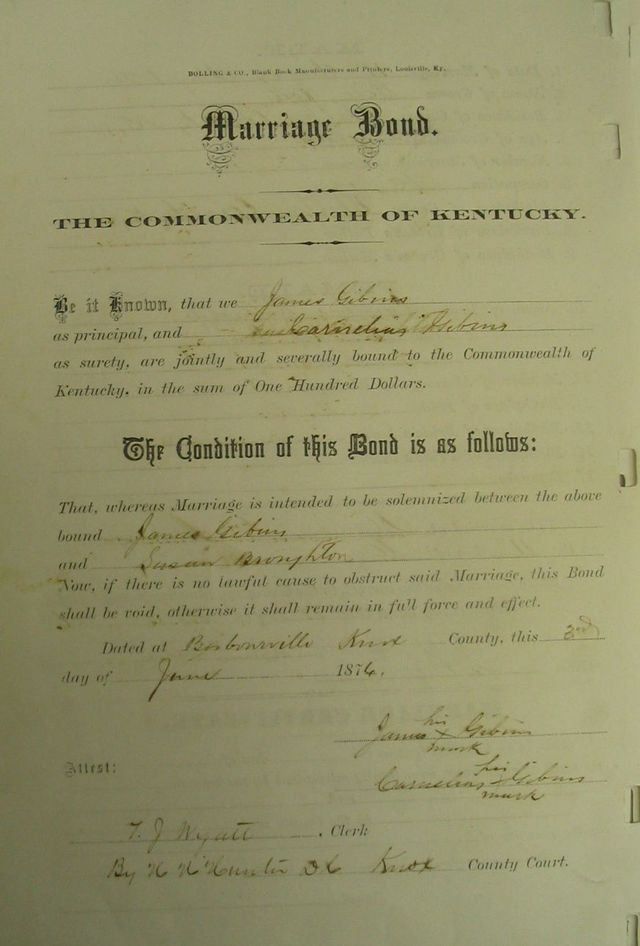 BOLLING & CO., Blank Book Manufacturers and Printers, Louisville, Ky.
Marriage Bond.
THE COMMONWEALTH OF KENTUCKY.
Be it Known, that we James Gibins
as principal, and Carnelius Gibins
as surety, are jointly and severally bound to the Commonwealth of
Kentucky, in the sum of One Hundred Dollars.
The Condition of this Bond is as follows:
That, whereas Marriage is intended to be solemnized between the above
bound James Gibins
and Susan Broughton
Now, if there is no lawful cause to obstruct said Marriage, this Bond
shall be void, otherwise it shall remain in full force and effect.
Dated at Barbourville Knox County, this 3rd
day of June 1876.
his
James x Gibins
mark
Attest:
his
Carnelius x Gibins
mark
T. J. Wyatt, Clerk
By H H Hunter D C Knox County Court.